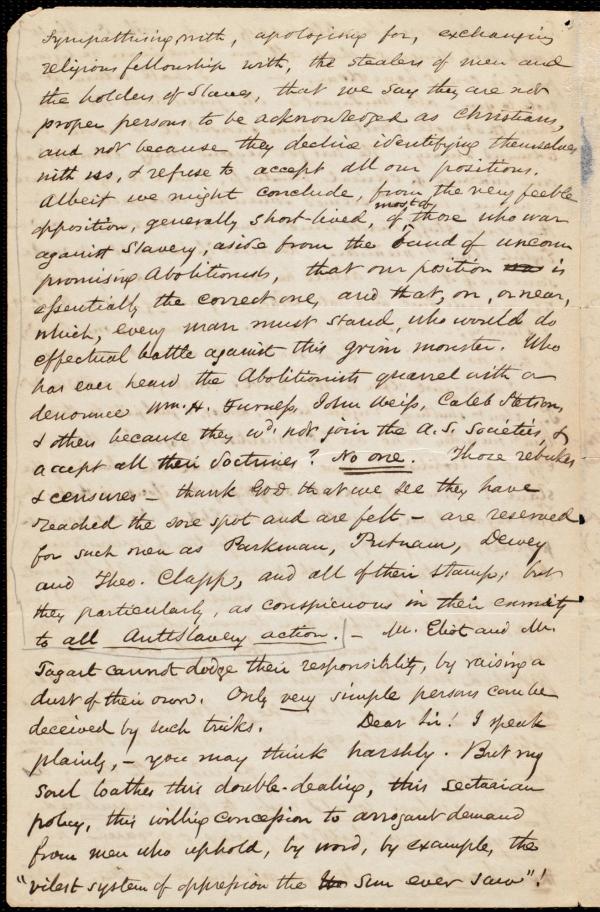 sympathising with, apologising for, exchanging
religious fellowship with, the stealers of men and
the holders of Slaves, that we say they are not
proper persons to be acknowledged as Christians,
and not because they decline identifying themselves
with us, & refuse to accept all our positions.
Albeit we might conclude, from the very feeble
opposition, generally short-lived, of most of those who war
against Slavery, aside from the band of uncom
promising Abolitionists, that our position is
essentially the correct one, and that, on, or near,
which, every man must stand, who would do
effectual battle against this grim monster. Who
has ever heard the Abolitionists quarrel with or
denounce Wm. H. Furness, John Weiss, Caleb Stetson,
& others because they wd. not join the A. S. Societies, &
accept all their doctrines? No one. Those rebukes
& censures – thank God that we see they have
reached the sore spot and are felt – are reserved
for such men as Parkman, Putnam, Dewey
and Theo. Clapp, and all of their stamp; but
they particularly, as conspicuous in their enmity
to all Antislavery action. – Mr. Eliot and Mr.
Tagart cannot dodge their responsibility, by raising a
dust of their own. Only very simple persons can be
deceived by such tricks. Dear Sir! I speak
plainly, – you may think harshly. But my
soul loathes this double-dealing, this sectarian
policy, this willing concession to arrogant demand
from men who uphold, by word, by example, the
"vilest system of oppression the Sun ever saw"!